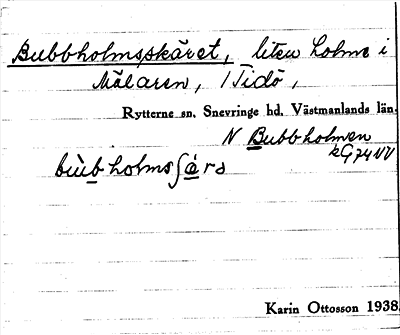 Bubbholmsskäret, liten holme i
Mälaren, 1 Tidö,
Rytterne sn. Snevringe hd. Västmanlands län.
N Bubbholmen
Karin Ottosson 1938.